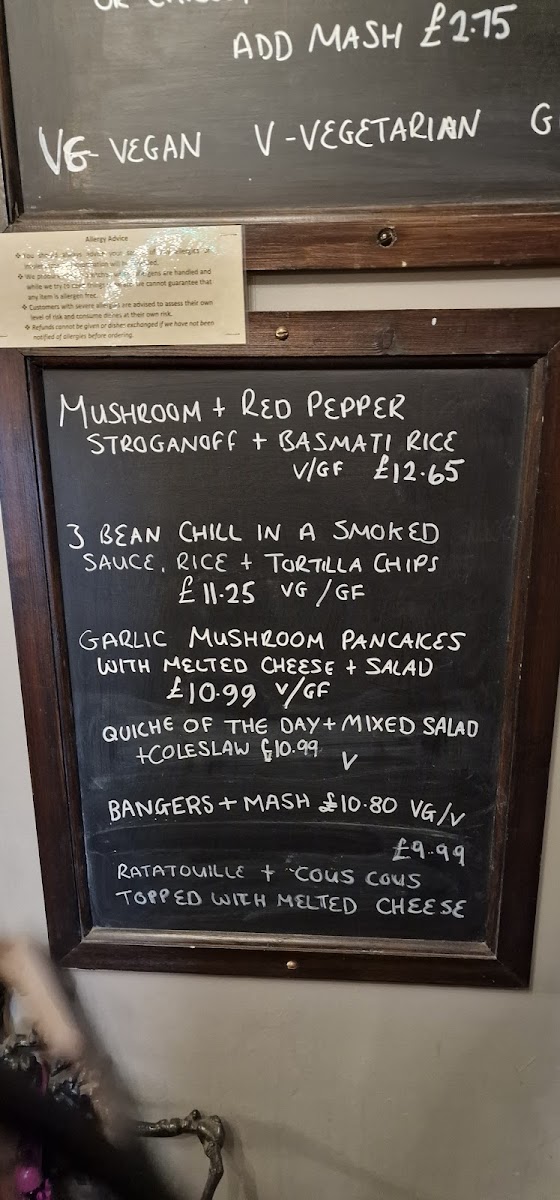 ADD MASH £2.75
VG- VEGAN V-VEGETARIAN G
Allergy Advice
any item is allergen free.
❖ Customers with severe allergies are advised to assess their own
level of risk and consume dishes at their own risk.
❖ Refunds cannot be given or dishes exchanged if we have not been
notified of allergies before ordering.
MUSHROOM + RED PEPPER
STROGANOFF + BASMATI RICE
V/GF £12.65
3 BEAN CHILL IN A SMOKED
SAUCE, RICE + TORTILLA CHIPS
£11.25 VG/GF
GARLIC MUSHROOM PANCAKES
WITH MELTED CHEESE + SALAD
£10.99 V/GF
QUICHE OF THE DAY + MIXED SALAD
+COLESLAW £10.99 V
BANGERS + MASH £10.80 VG/V
£9.99
RATATOUILLE + COUS COUS
TOPPED WITH MELTED CHEESE